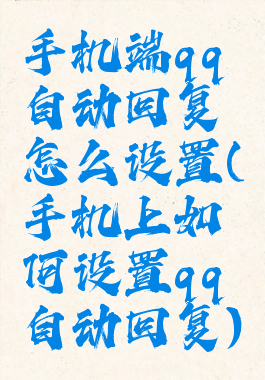 手机端qq
自动回复
怎么设置(
手机上如
何设置qq
自动回复)